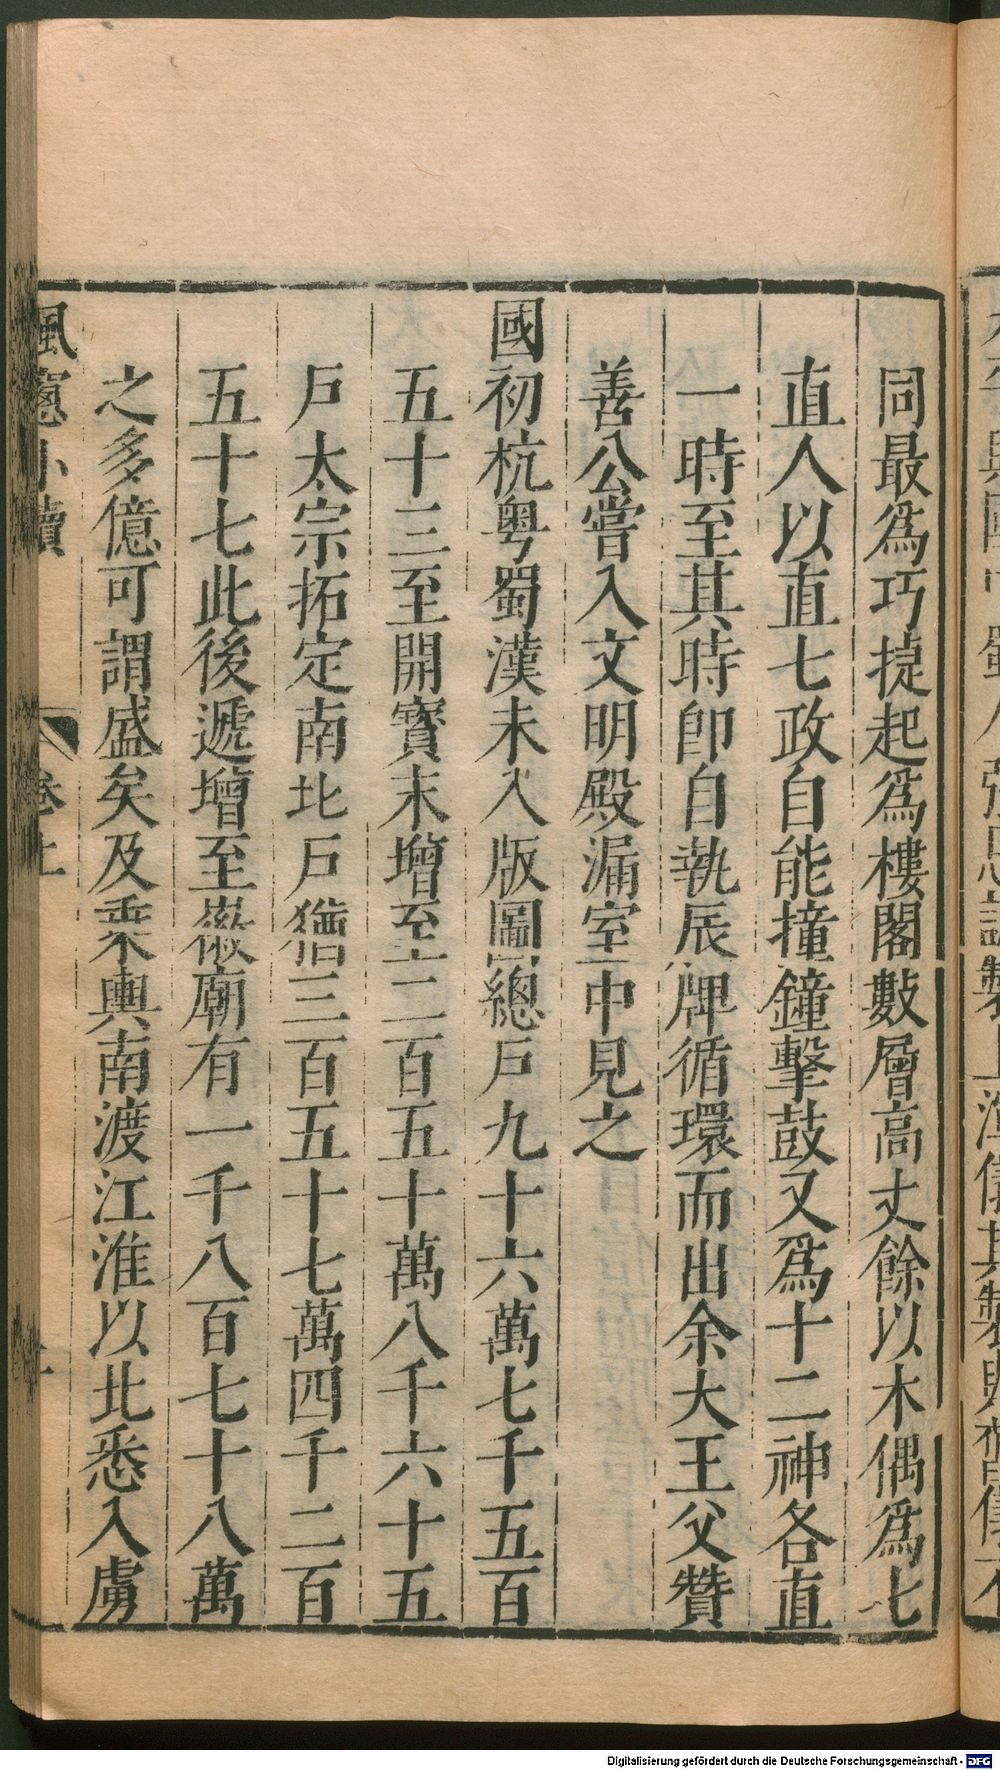 同最爲巧㨗起爲樓閣數層高丈餘以木偶爲七
直人以直七政自能撞鐘擊鼓又爲十二神各直
一時至其時卽自執辰牌循環而出余大王父贊
善公嘗入文明殿漏室中見之
國初杭粤蜀漢未入版圖總戶九十六萬七千五百
五十三至開寳末增至二百五十萬八千六十五
戶太宗拓定南北戶猶三百五十七萬四千二百
五十七此後遞增至徽廟有一千八百七十八萬
之多億可謂盛矣及乗輿南渡江淮以北悉入虜
楓窻小牘
卷上
Digitalisierung gefördert durch die Deutsche Forschungsgemeinschaft - DFG